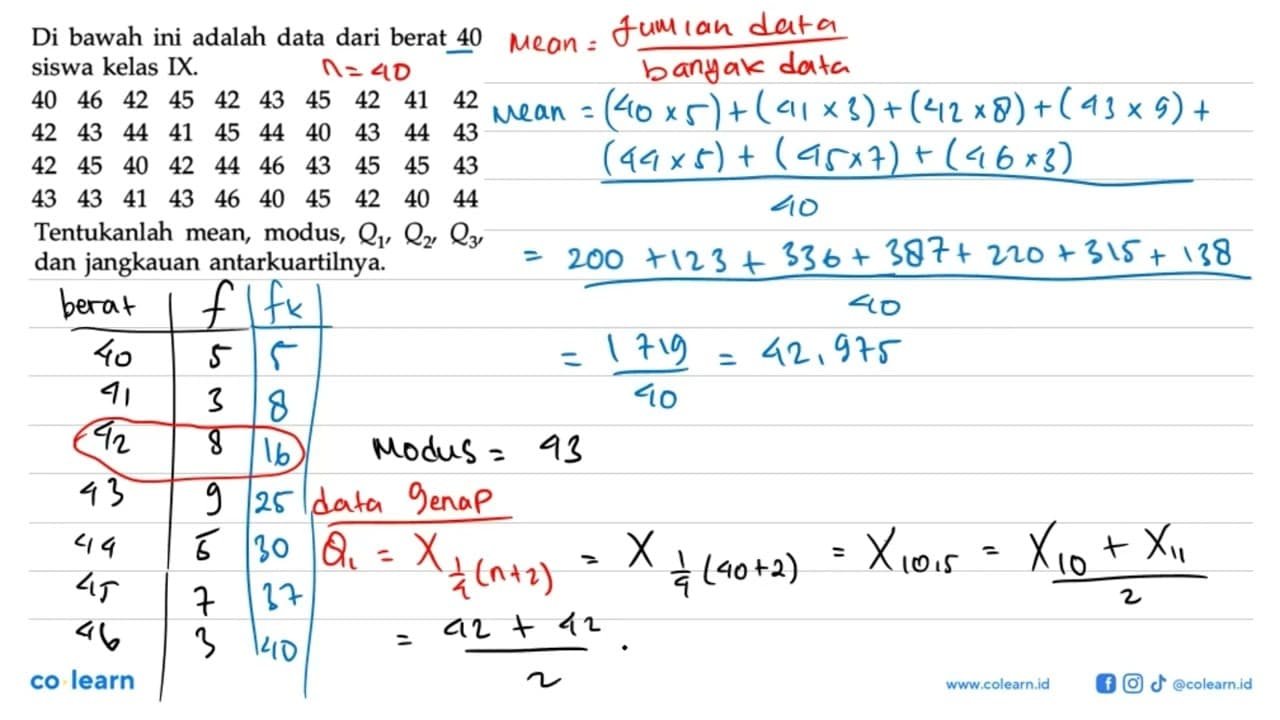 Di bawah ini adalah data dari berat 40
siswa kelas IX.
n = 40
40 46 42 45 42 43 45 42 41 42
42 43 44 41 45 44 40 43 44 43
42 45 40 42 44 46 43 45 45 43
43 43 41 43 46 40 45 42 40 44
Tentukanlah mean, modus, Q₁, Q₂, Q₃,
dan jangkauan antarkuartilnya.
Mean = Jumlah data
banyak data
Mean = (40 x 5) + (41 x 3) + (42 x 8) + (43 x 9) +
(44 x 5) + (45 x 7) + (46 x 3)
40
= 200 + 123 + 336 + 387 + 220 + 315 + 138
40
= 1719 = 42,975
40
berat f fk
40 5 5
41 3 8
42 8 16
43 9 25
44 5 30
45 7 37
46 3 40
Modus = 43
data genap
Q₁ = X 1/4 (n+2) = X 1/4 (40+2) = X 10,5 = X10 + X11
2
= 42 + 42 .
2
co learn
www.colearn.id
@colearn.id